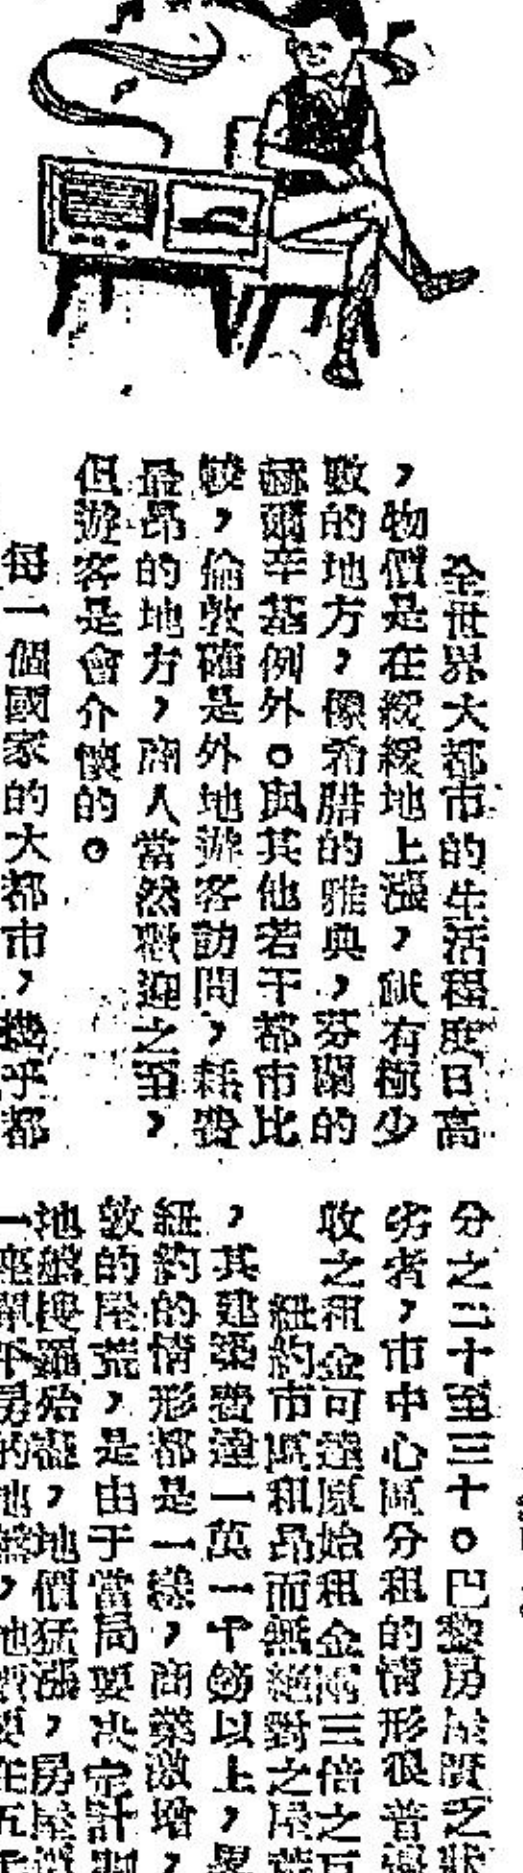 全世界大都市的生活程度日高
，物價是在緩緩地上漲，祇有極少
數的地方，像希腊的雅典，芬蘭的
赫爾辛基例外。與其他若干都市比
較，倫敦確是外地遊客訪問，耗費
最昂的地方，商人當然歡迎之至，
但遊客是會介懷的。
每一個國家的大都市，幾乎都
分之二十至三十。巴黎房屋
劣者，市中心區分租的情形很普遍
收之租金可達原始租金兩三倍之
紐約市區租昂而無絕對之屋荒
，其建築費達一萬一千鎊以上，
紐約的情形都是一樣，商業激增，
敦的屋荒，是由于當局要決定計劃
地盤搜羅殆盡，地價猛漲，房屋
一座單